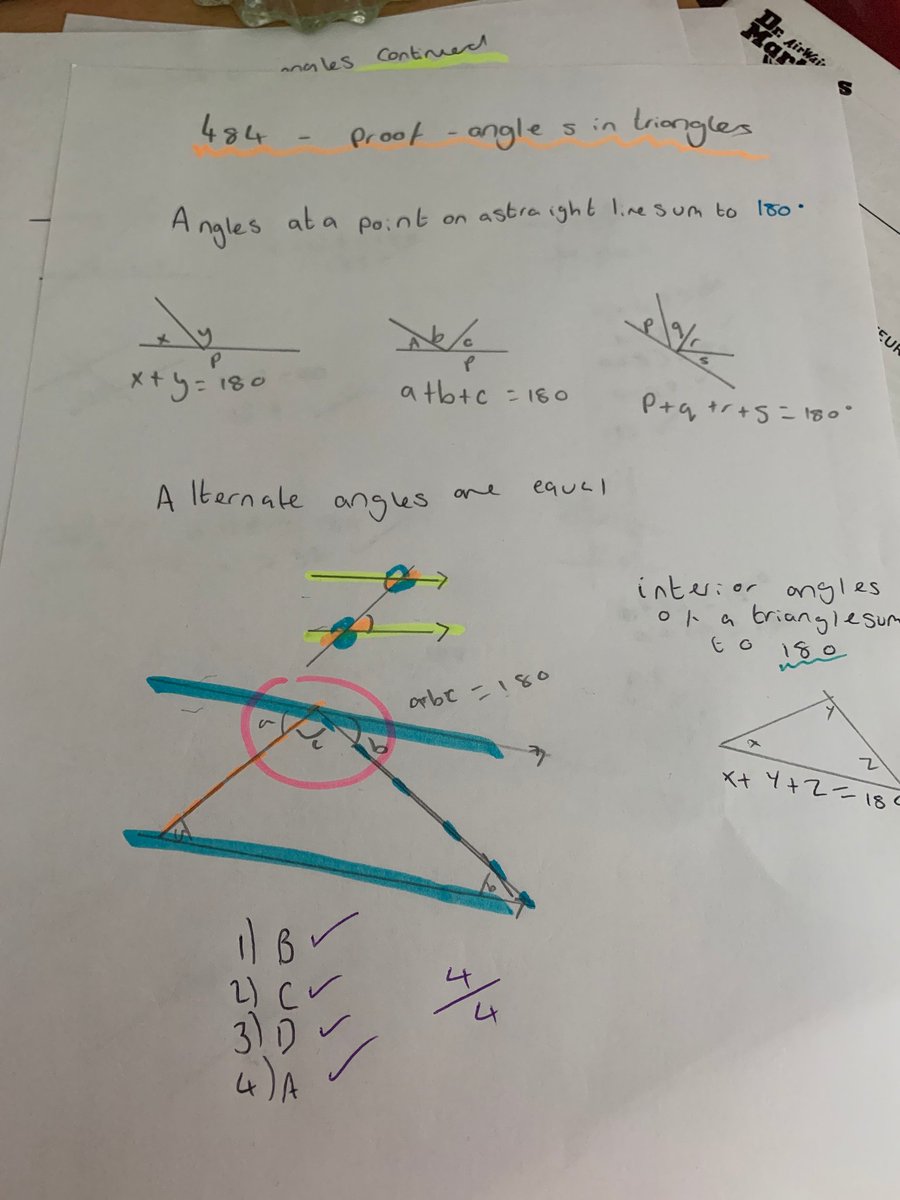 angles continued
Dr.
AirWair
Mar
s
484 - proof - angle s in triangles
Angles at a point on a straight line sum to 180°
x y
P
x + y = 180
A b c
P
a+b+c = 180
P q r s
P+q+r+s = 180°
EUR
Alternate angles are equal
interior angles
of a triangle sum
to 180
a+b+c = 180
a c b
b
y
x z
x + y + z = 180
1) B ✓
2) C ✓
3) D ✓
4) A ✓
4/4